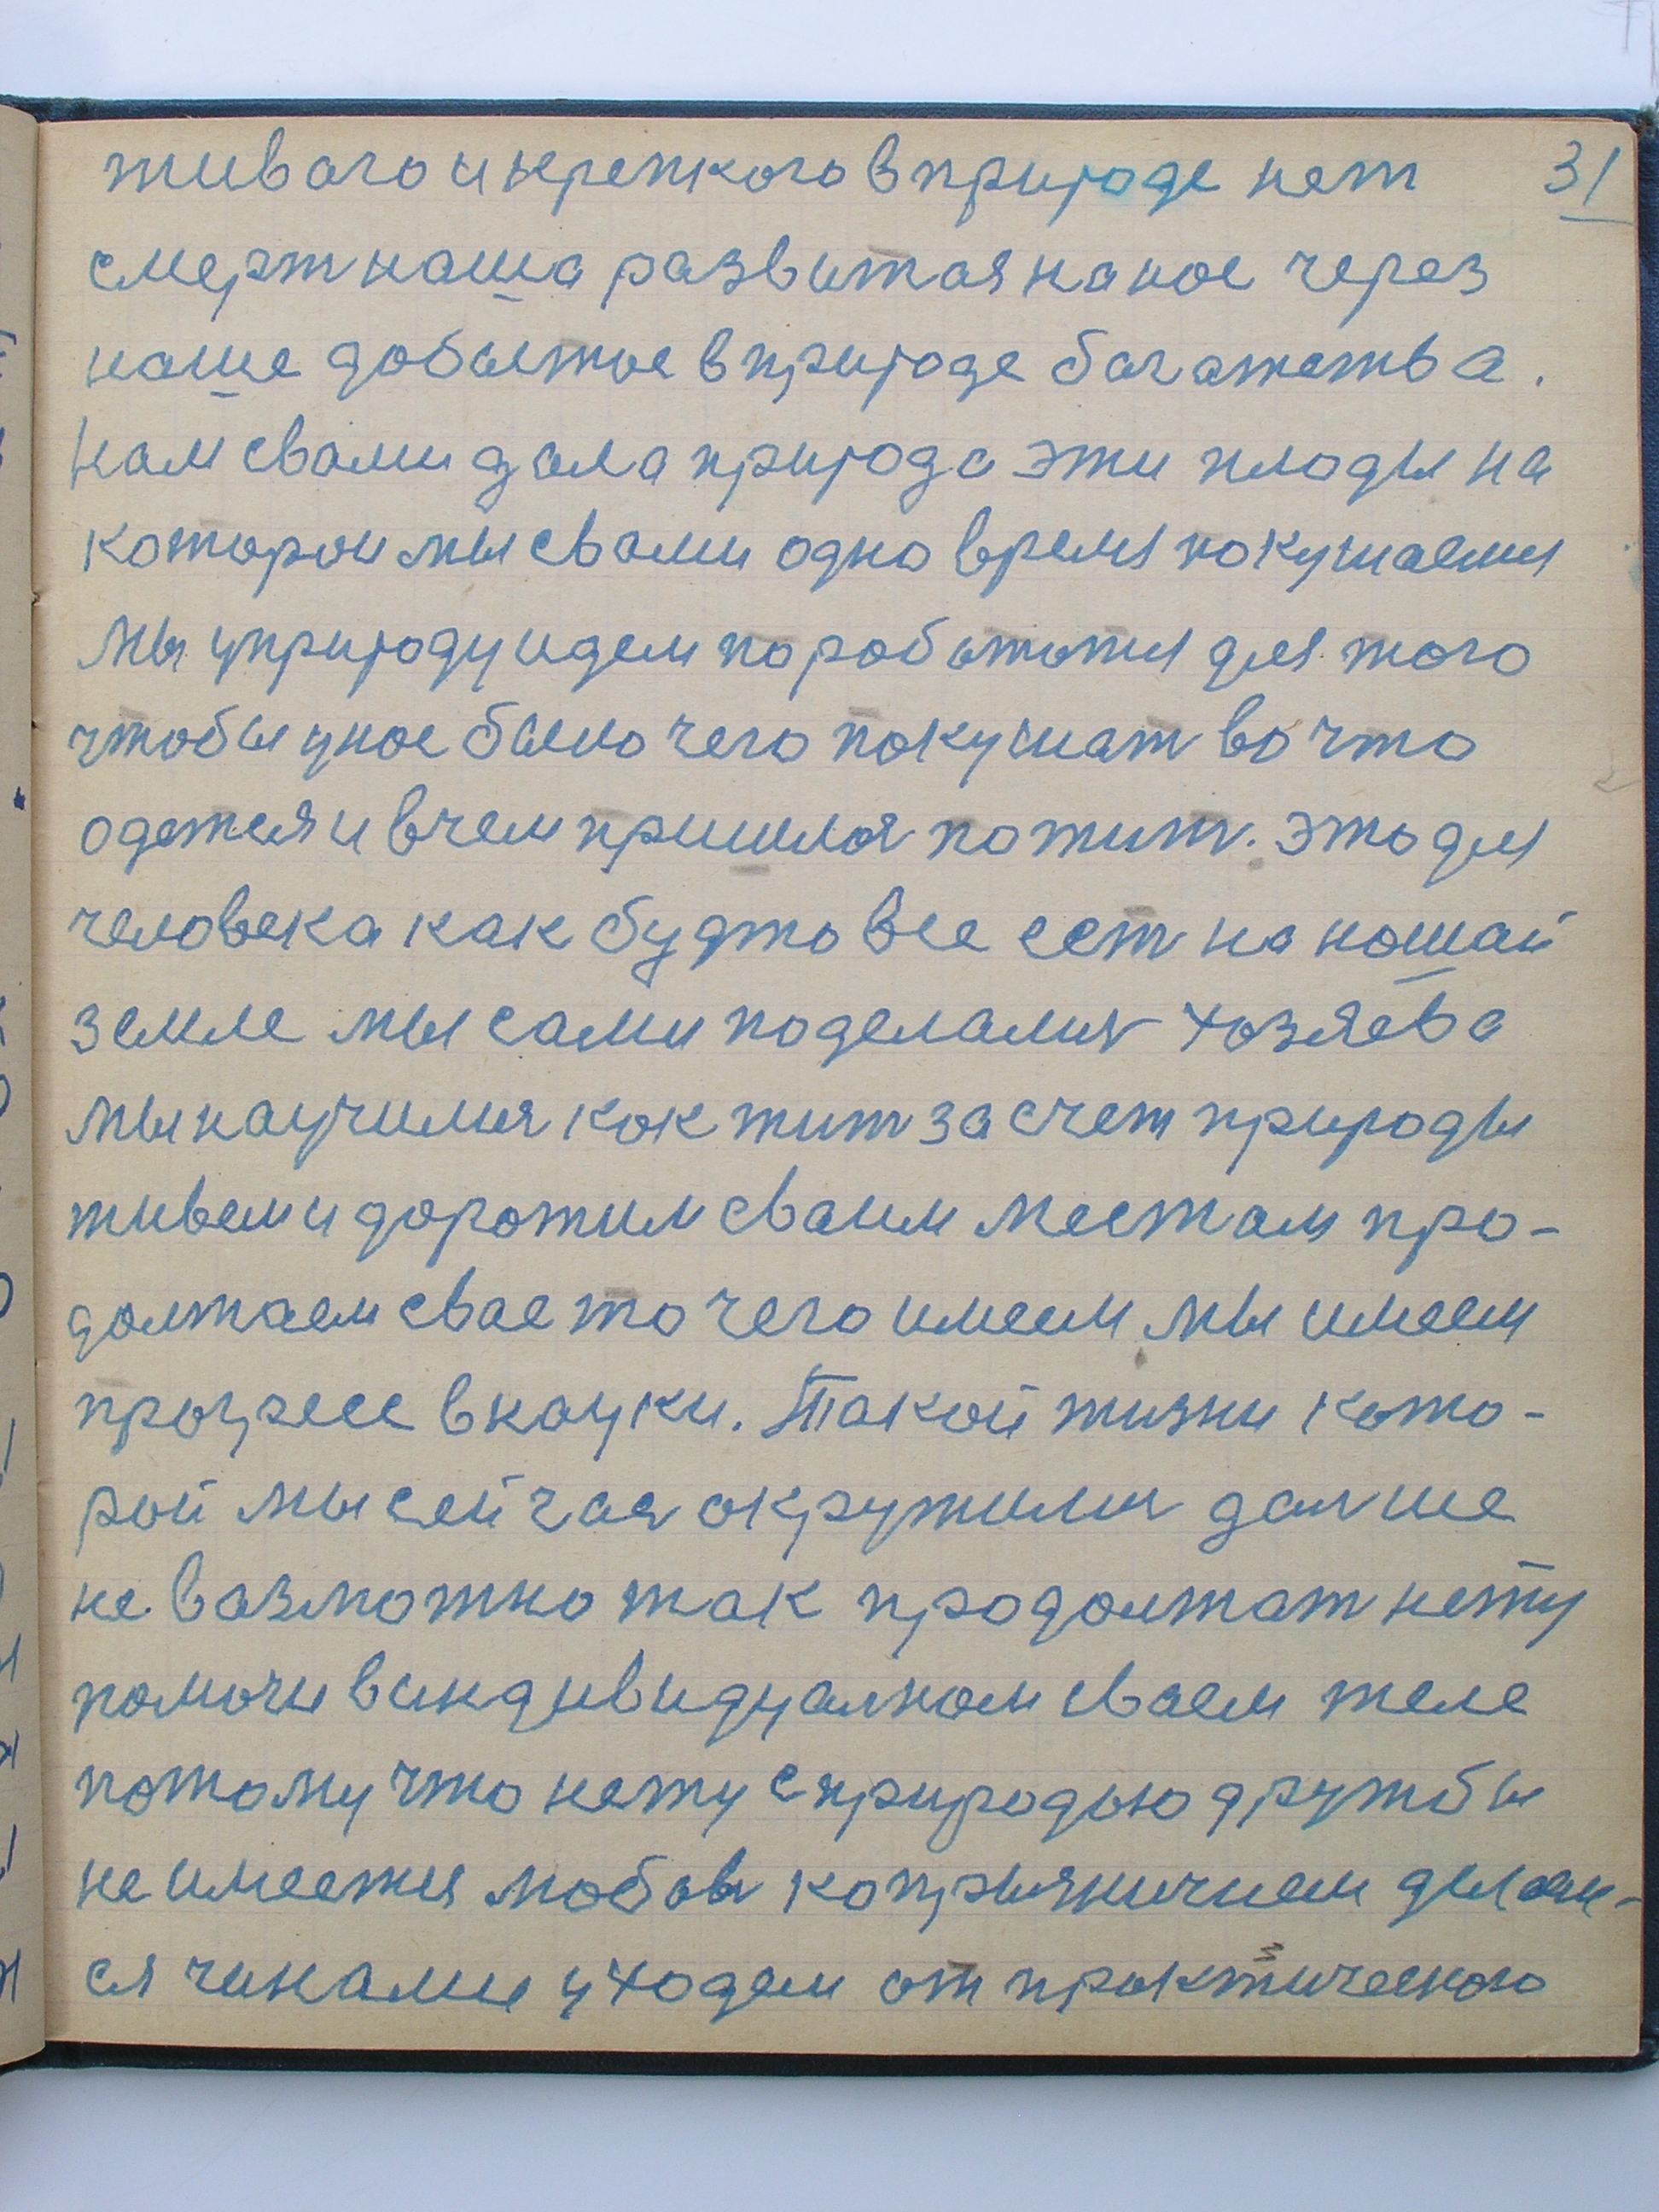 31
живаго и крепкого в природе нет
смерт наша развитая на нас через
наше добытое в природе багатства.
Нам свами дала природа эти плоды на
которои мы свами одно время покушаемся
мы у природу идем поработатся для того
чтобы у нас было чего покушат во что
одется и в чем пришлося пожит. это для
человека как будто все ест на нашай
земле мы сами поделалися хозяева
мы научился как жит за счет природы
живем и дорожим сваим местам про-
должаем свае то чего имеем мы имеем
процгесс в науки. Такой жизни кото-
рой мы сейчас окружился далше
не вазможно так продолжат нету
помочи в индивидуалном сваем теле
потому что нету с природою дружбы
не имеется любовь
ся чинами уходем от практического